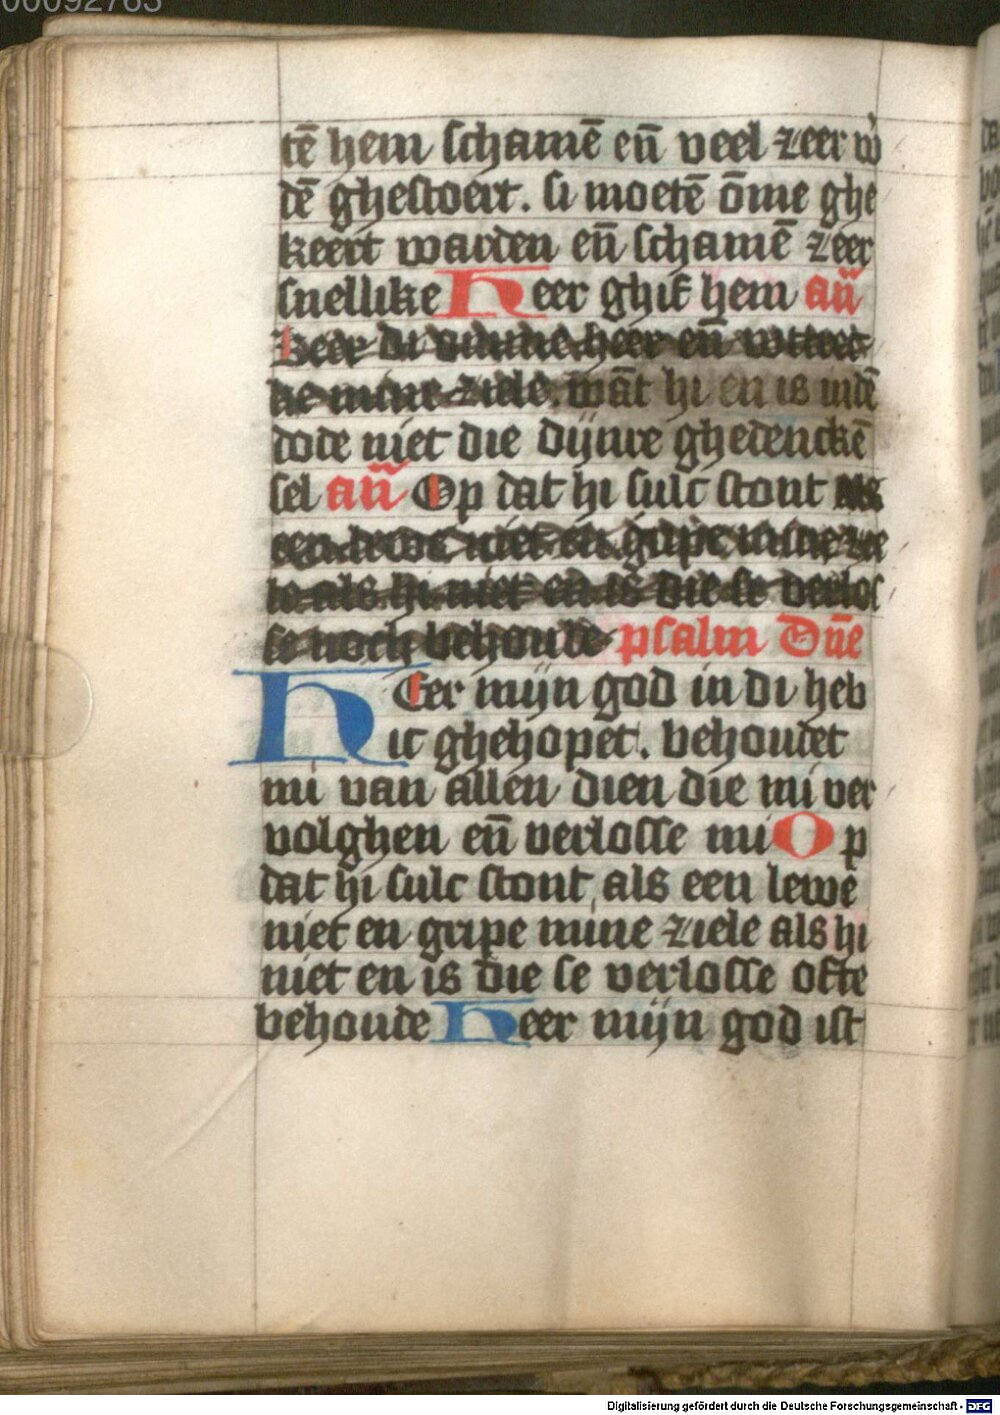 00092763
tē hem schamē eñ veel zeer w̄
dē ghestoert. si moetē ōme ghe
keert warden eñ schamē zeer
snellike Heer ghif hem añ
heer eñ
mine ziele. wāt hi en is indē
dode niet die dijnre ghedenckē
sel añ Op dat hi sulc stont als
niet en gripe mine zie
le als hi niet en is die se verlos
se noch behoude psalm Dñe
HEer mijn god in di heb
ic ghehopet. behoudet
mi van allen dien die mi ver
volghen eñ verlosse mi Op
dat hi sulc stont als een lewe
niet en gripe mine ziele als hi
niet en is die se verlosse ofte
behoude Heer mijn god ist
Digitalisierung gefördert durch die Deutsche Forschungsgemeinschaft - DFG